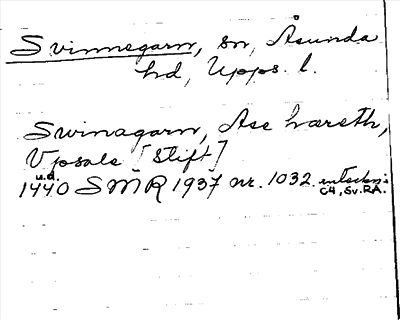 Svinnegarn, sn, Åsunda
hd, Upps. l.
Swinagarn, Ase hæreth,
Vpsale [stift]
u.d.
1440 SMR 1937 nr. 1032.
C4, Sv. RA.